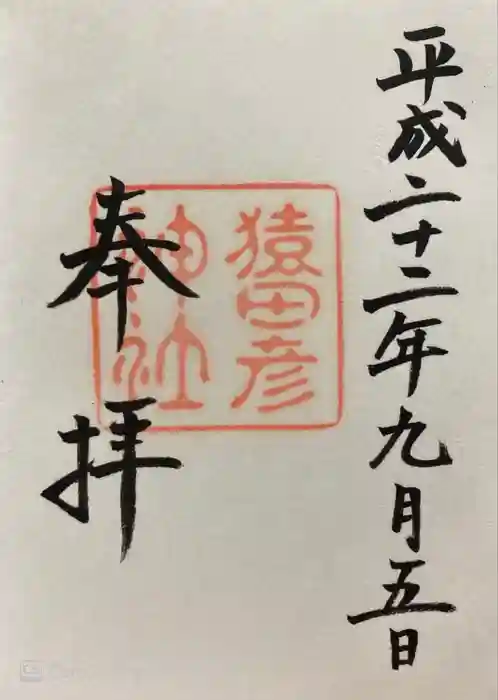 平成二十二年九月五日
猿田彦
神社
奉拝